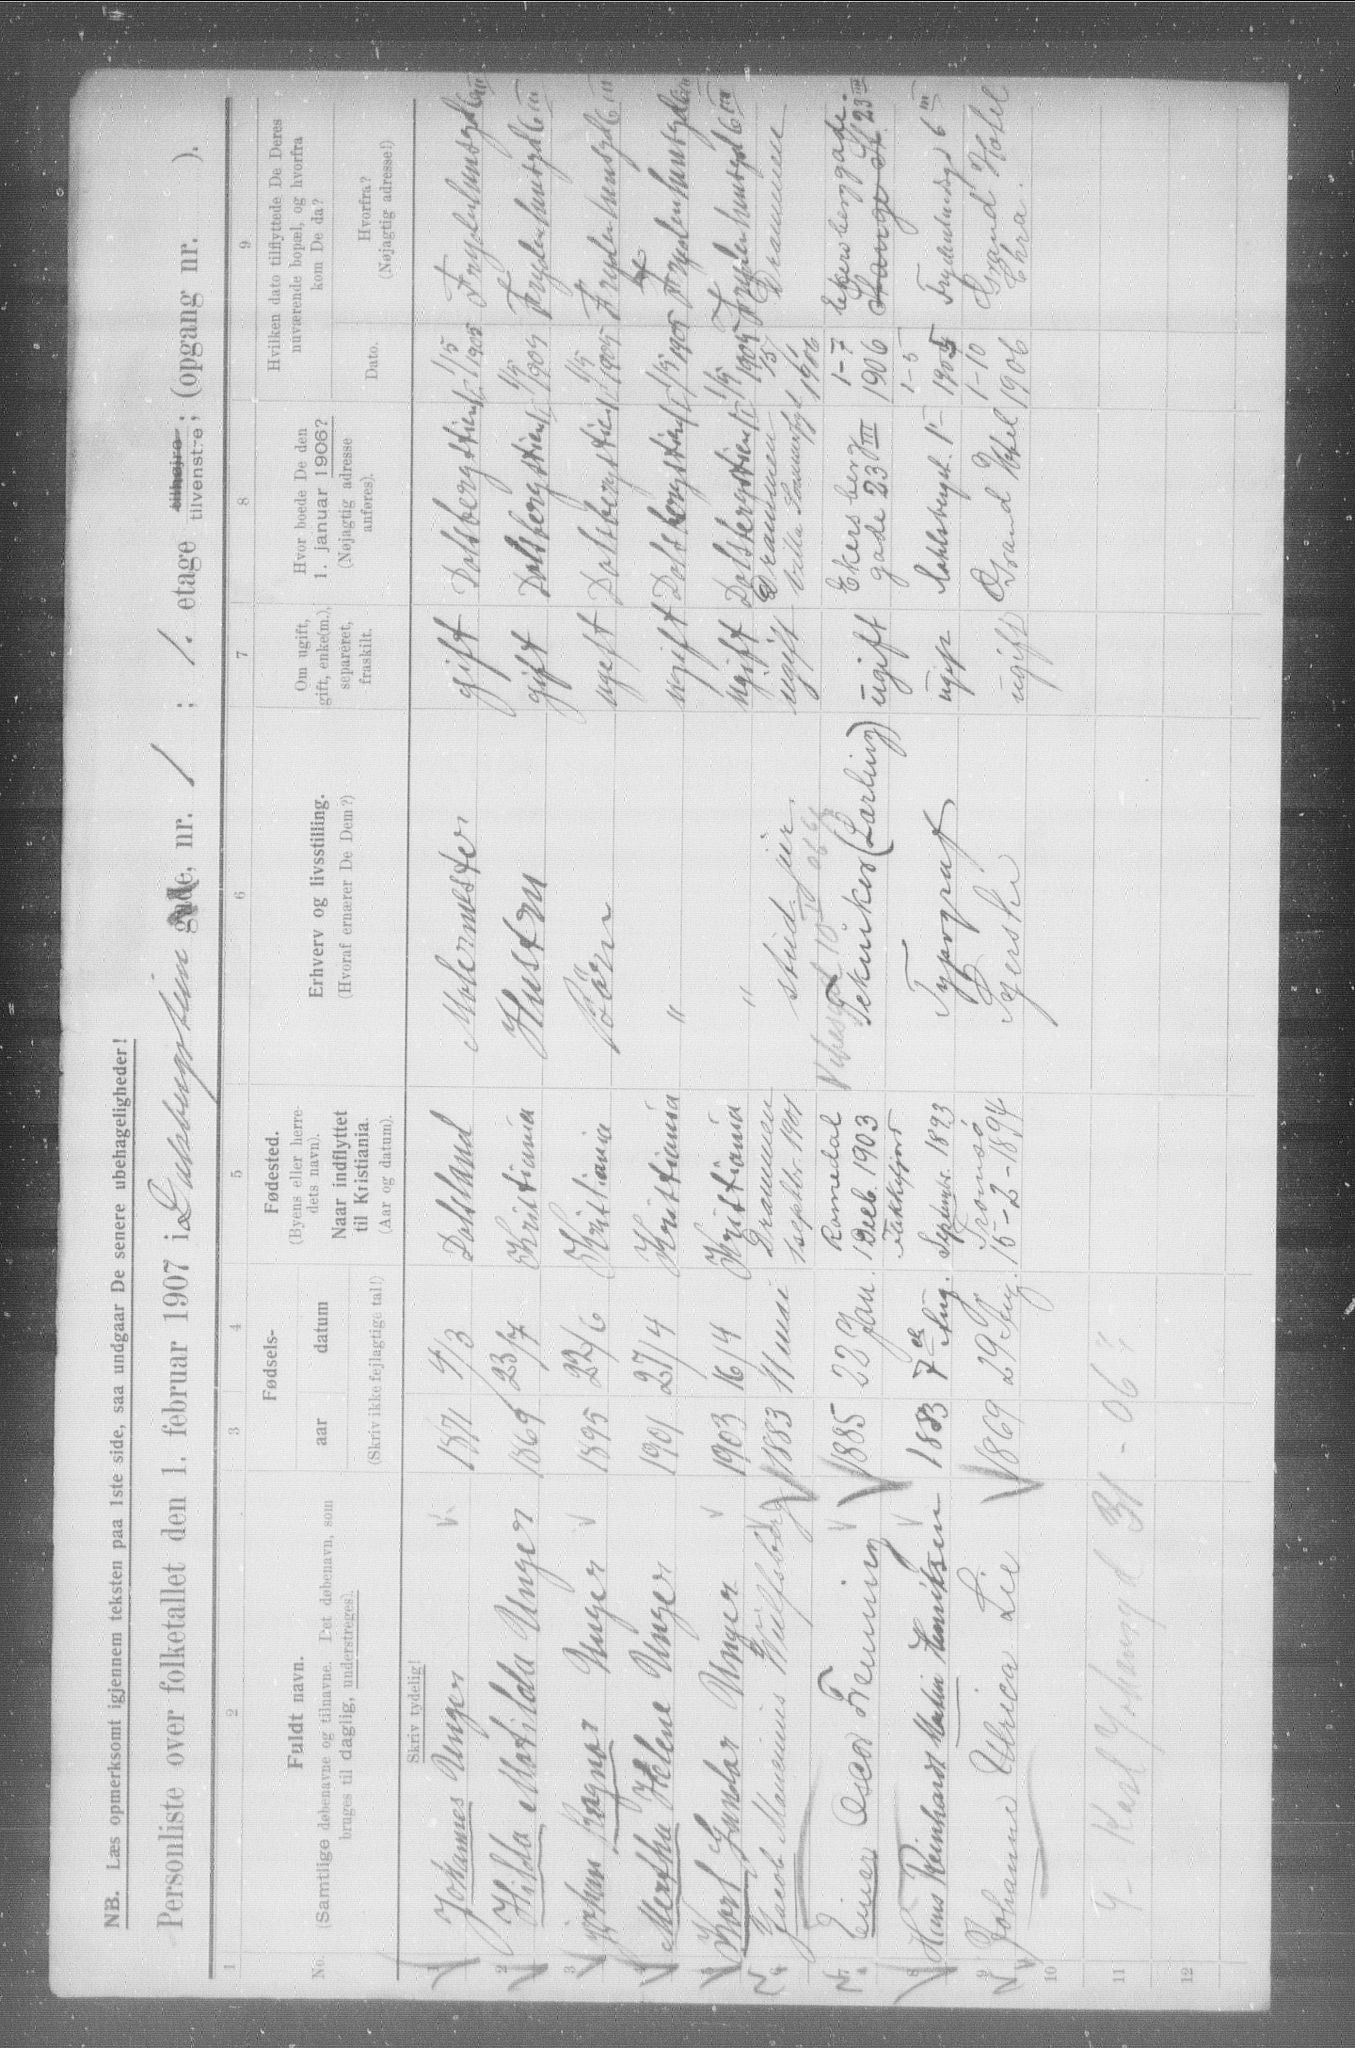 NB. Læs opmerksomt igjennem teksten paa 1ste side, saa undgaar De senere ubehageligheder!
Personliste over folketallet den 1. februar 1907 i Dalsbergstien gade, nr. 1 ; 1. etage tilhøjre tilvenstre; (opgang nr. ).
1 2 3 4 5 6 7 8 9
No.
Fuldt navn.
(Samtlige døbenavne og tilnavne. Det døbenavn, som
bruges til daglig, understreges).
Fødsels-
aar datum
(Skriv ikke fejlagtige tal!)
Fødested.
(Byens eller herre-
dets navn).
Naar indflyttet
til Kristiania.
(Aar og datum).
Erhverv og livsstilling.
(Hvoraf ernærer De Dem?)
Om ugift,
gift, enke(m.),
separeret,
fraskilt.
Hvor boede De den
1. januar 1906?
(Nøjagtig adresse
anføres).
Hvilken dato tilflyttede De Deres
nuværende bopæl, og hvorfra
kom De da?
Dato.
Hvorfra?
(Nøjagtig adresse!)
Skriv tydelig!
1 Johannes Unger 1871 4/3 Dalsland Malermester gift Dalsbergstien 1 1/5 1905
2 Hilda Matilda Unger 1869 23/7 Kristiania Hustru gift Dalsbergstien 1 1/5 1905
3 Johan Ragnar Unger 1895 22/6 Kristiania Børn ugift Dalsbergstien 1 1/5 1905
4 Martha Helene Unger 1901 27/4 Kristiania " ugift Dalsbergstien 1 1/5 1905
5 Karl Gunder Unger 1903 16/4 Kristiania " ugift Dalsbergstien 1 1/5 1905
6 Jacob Marenius Wulfsberg 1883 11 mai Drammen
1 septbr. 1901 stud. jur. ugift Drammen
Villa 1906 Drammen
7 Einar Oscar Flemming 1885 22 Jan. Romedal
1 Decb. 1903 Tekniker (Lærling) ugift Ekersberg
gade 23 III 1-7
1906 Ekersberggade.
Stange St. 23 III
8 Hans Reinhardt Martin Henriksen 1883 7de Aug. Jakkefjord
Septembr. 1893 Typograf ugift 1-5
1905 6 III
9 Johanne Ulrica Lie 1869 29 Aug. Tromsø
15-2-1894 ugift Grand Hotel 1-10
1906 Grand Hotel
Chra.
10
11 9- Karl Johansgd 31 - 06
12